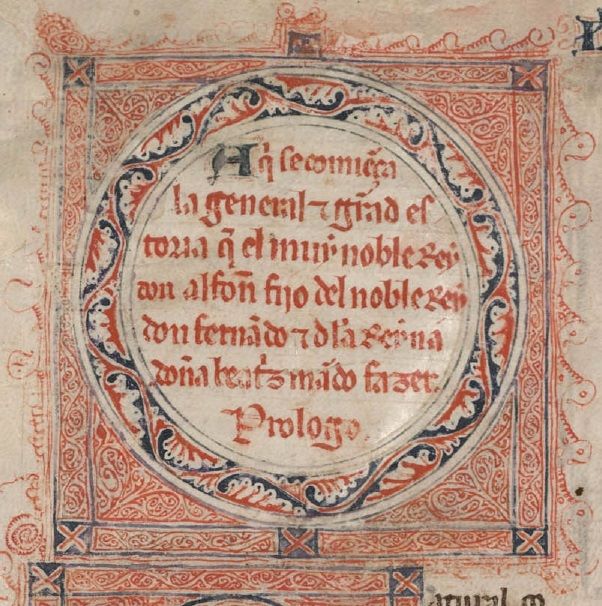 Aq̃ se comiẽça
la general ⁊ grãd es
toria q̃ el muy noble Rey
don alfoñ fijo del noble Rey
don fernãdo ⁊ dla Reyna
doña beatͥz mãdo fazer.
Prologo.
atural